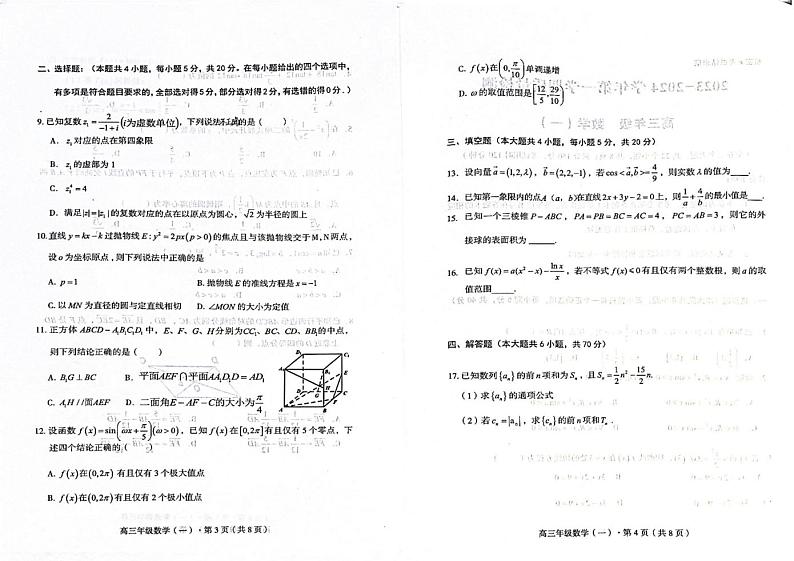 二、选择题：（本题共4小题，每小题5分，共20分。在每小题给出的四个选项中，
有多项是符合题目要求的。全部选对得5分，部分选对得2分，有选错的得0分.）
9. 已知复数 z₁ = 2/(-1+i) (i为虚数单位)，下列说法正确的是（ ）
A. z₁ 对应的点在第四象限
B. z₁ 的虚部为1
C. z₁⁴ = 4
D. 满足|z|=|z₁|的复数对应的点在以原点为圆心，√2为半径的圆上
10. 直线 y = kx − k 过抛物线 E: y² = 2px(p > 0) 的焦点且与该抛物线交于M,N两点，
设o为坐标原点，则下列说法中正确的是
A. p = 1 B. 抛物线E的准线方程是 x = −1
C. 以MN为直径的圆与定直线相切 D. ∠MON的大小为定值
11. 正方体 ABCD − A₁B₁C₁D₁ 中，E、F、G、H分别为CC₁、BC、CD、BB₁的中点，
则下列结论正确的是（ ）
A. B₁G ⊥ BC B. 平面AEF∩平面AA₁D₁D = AD₁
C. A₁H // 面AEF D. 二面角E − AF − C的大小为π/4
12. 设函数 f(x) = sin(ωx + π/5)(ω > 0)，已知 f(x) 在[0,2π]有且仅有5个零点，下
述四个结论正确的（ ）
A. f(x)在(0,2π)有且仅有3个极大值点
B. f(x)在(0,2π)有且仅有2个极小值点
高三年级数学（一）·第3页（共8页）
C. f(x)在(0, π/10)单调递增
D. ω的取值范围是[12/5, 29/10)
三、填空题（本大题共4小题，每小题5分，共20分）
13. 设向量 a = (1,2,λ)，b = (2,2,−1)，若cos<a,b> = 4/9，则实数λ的值为____.
14. 已知第一象限内的点A（a，b）在直线2x+3y−2=0上，则 1/a + 4/b 的最小值是___.
15. 已知一个三棱锥 P − ABC，PA = PB = BC = AC = 4，PC = AB = 3，则它的外
接球的表面积为______.
16. 已知 f(x) = a(x² − x) − lnx/x，若不等式 f(x) < 0 有且仅有两个整数根，则a的取
值范围____.
四、解答题（本大题共6小题，共70分）
17. 已知数列{aₙ}的前n项和为Sₙ，且 Sₙ = 1/2 n² − 15/2 n.
（1）求{aₙ}的通项公式
（2）若 cₙ = |aₙ|，求{cₙ}的前n项和Tₙ.
高三年级数学（一）·第4页（共8页）